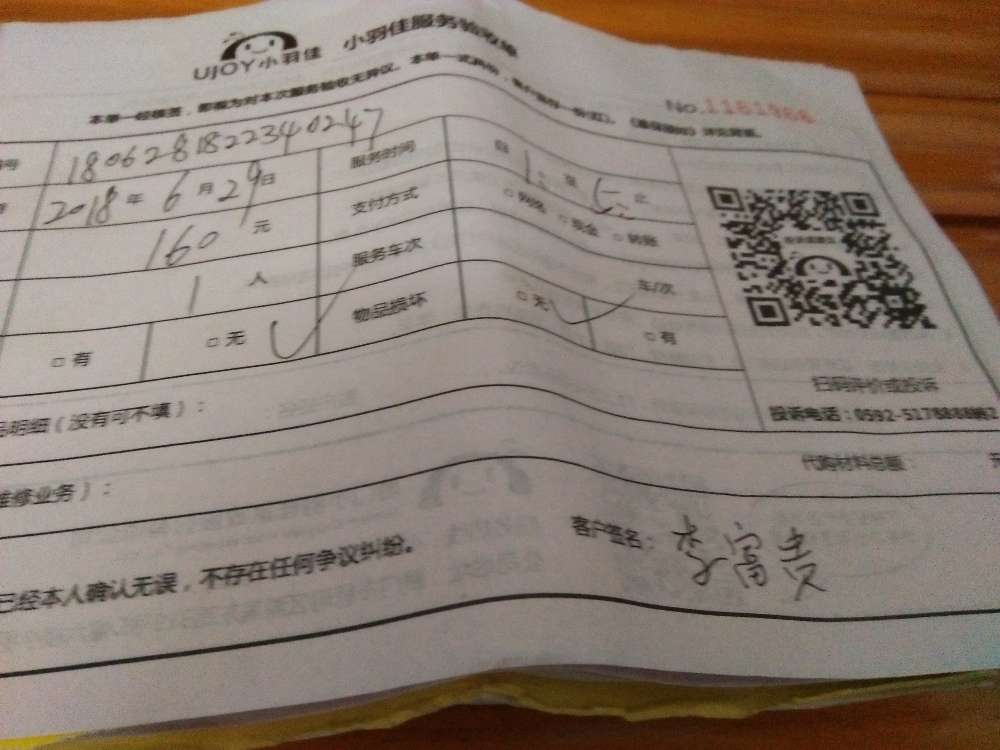 UJOY小羽佳 小羽佳服务验收单
本单一经签,即视为对本次服务验收无异议。本单一式两份,客户留存一份(红)。
No.1181966
号 1806281822340247 服务时间 自 1: 至 5: 止
2018年6月29日 支付方式 □ 网络 □ 现金 □ 转账
160 元 服务车次 车/次
1 人 物品损坏 □ 无 □ 有
□ 有 □ 无
扫码评价或投诉
投诉电话:0592-5178888
品明细(没有可不填):
代购材料总额 元
维修业务):
已经本人确认无误,不存在任何争议纠纷。
客户签名:李富贵